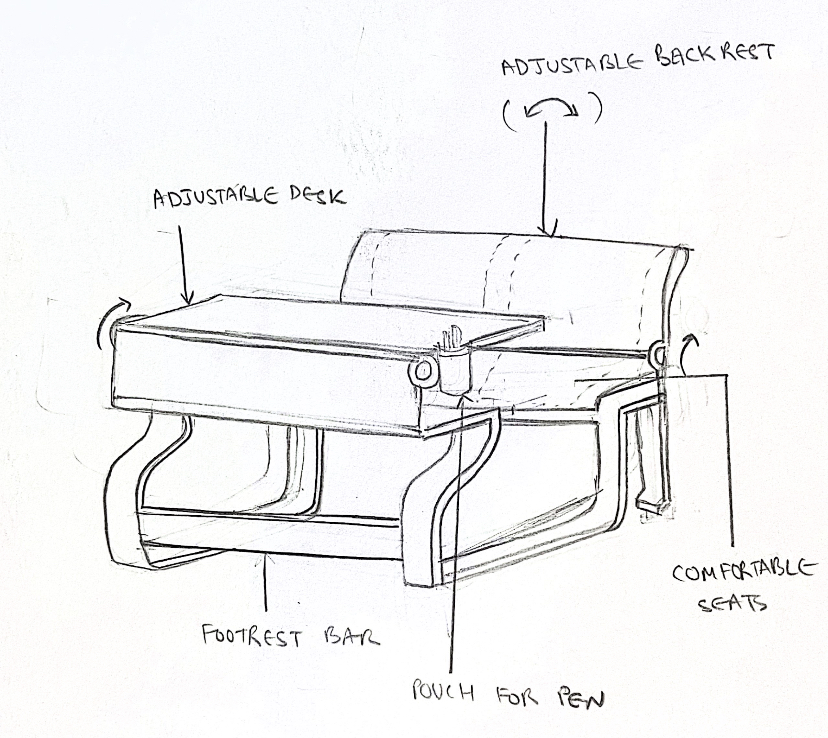 ADJUSTABLE BACKREST
ADJUSTABLE DESK
COMFORTABLE
SEATS
FOOTREST BAR
POUCH FOR PEN